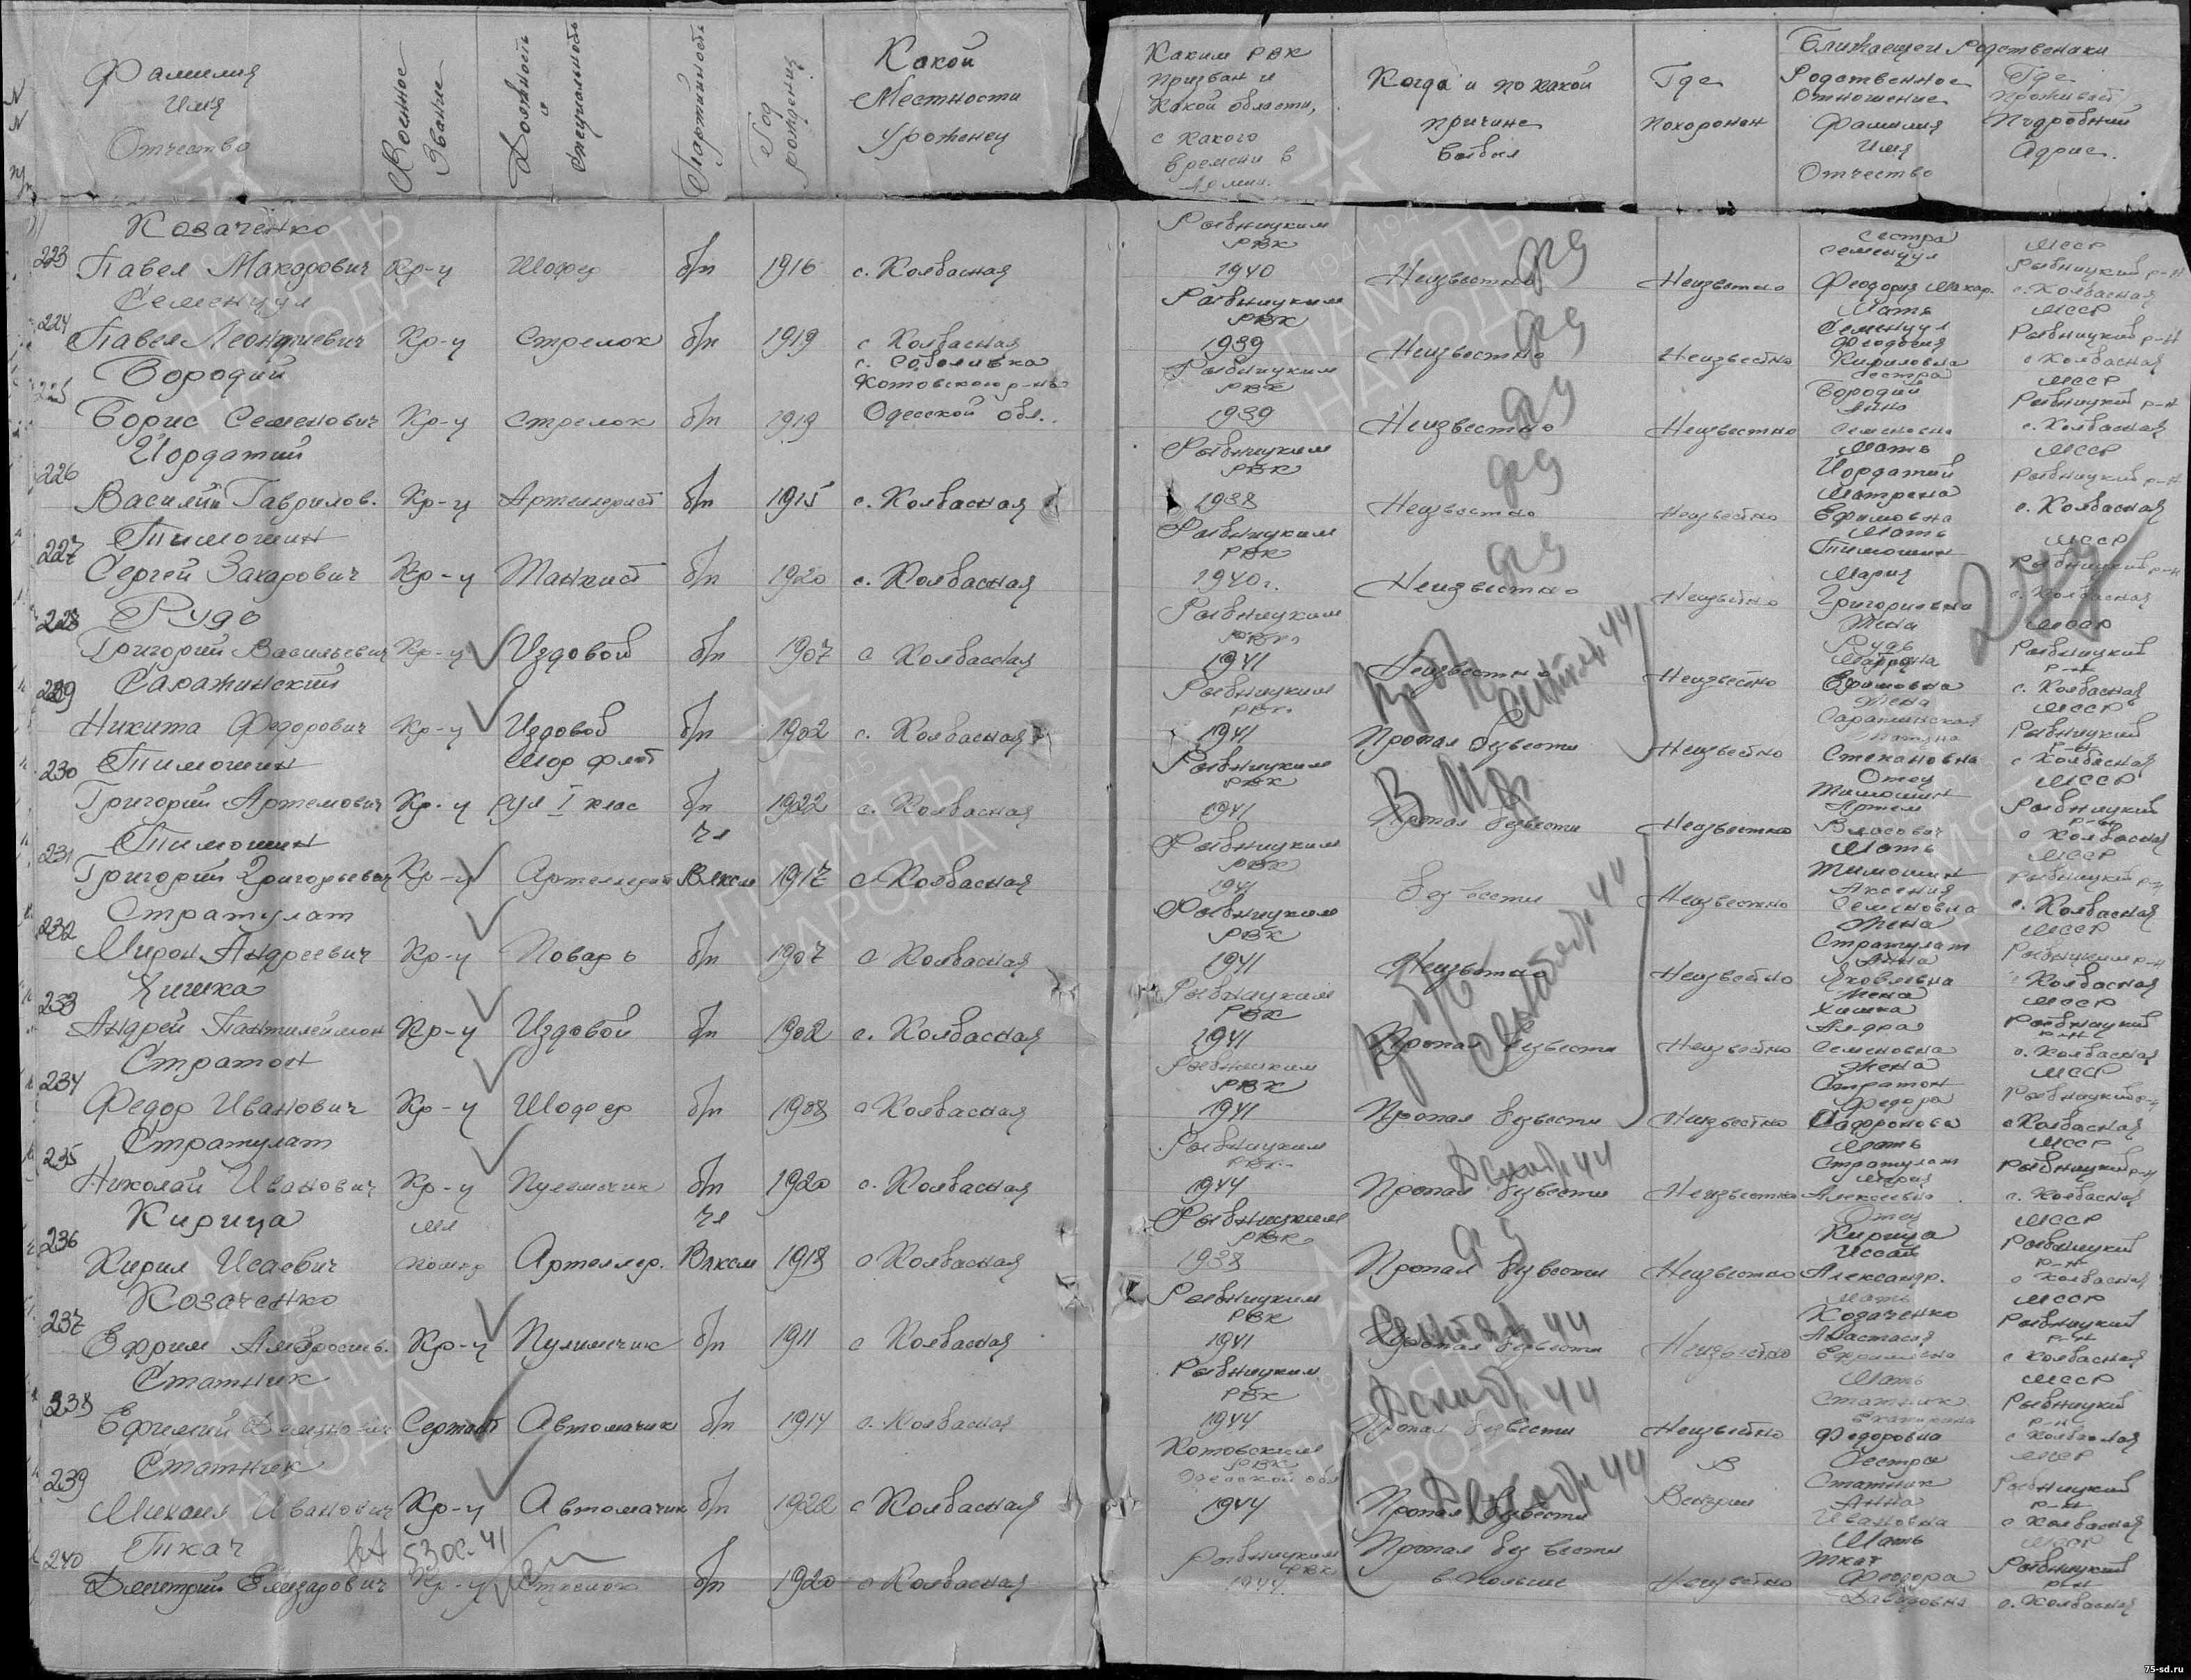 Фамилия Имя Отчество
Военное Звание
Должность и Специальность
Партийность
Год рождения
Какой Местности Уроженец
Каким РВК призван и какой области, с какого времени в Армии.
Когда и по какой причине выбыл
Где похоронен
Ближаещеи Родственики
Родственное Отношение Фамилия Имя Отчество
Где Проживает Подробный Адрес.
223 Козаченко Павел Макарович Кр-ц Шофер б/п 1916 с. Колбасная Рыбницким РВК 1940 Неизвестно Неизвестно сестра Семенцул Феодория Макар. МССР Рыбницкий р-н с. Колбасная
224 Семенцул Павел Леонтиевич Кр-ц Стрелок б/п 1919 с Колбасная Рыбницким РВК 1939 Неизвестно Неизвестно Мать Семенцул Феодосия Кириловна МССР Рыбницкий р-н с Колбасная
225 Бородий Борис Семенович Кр-ц Стрелок б/п 1919 с. Соболивка Котовского р-на Одесской обл. Рыбницким РВК 1939 Неизвестно Неизвестно сестра Бородий Семеновна МССР Рыбницкий р-н с. Колбасная
226 Йордатий Василий Гаврилов. Кр-ц Артилерист б/п 1915 с. Колбасная Рыбницким РВК 1938 Неизвестно Неизвестно Мать Йордатий Матрена Ефимовна МССР Рыбницкий р-н с. Колбасная
227 Тимошин Сергей Захарович Кр-ц Танкист б/п 1920 с. Колбасная Рыбницким РВК 1940г. Неизвестно Неизвестно Мать Тимошин Мария Григориевна МССР Рыбницкий р-н с. Колбасная
228 Рудь Григорий Васильевич Кр-ц Издовой б/п 1907 с Колбасная Рыбницким РВК 1941 Неизвестно Неизвестно Жена Рудь Ефимовна МССР Рыбницкий р-н с. Колбасная
229 Саражинский Никита Федорович Кр-ц Издовой б/п 1902 с. Колбасная Рыбницким РВК 1941 Пропал безвести Неизвестно Жена Саражинская Степановна МССР Рыбницкий р-н с Колбасная
230 Тимошин Григорий Артемович Кр-ц Мор флот рул I клас б/п 1922 с. Колбасная Рыбницким РВК 1941 Пропал безвести Неизвестно Отец Тимошин Артем Власович МССР Рыбницкий р-н с Колбасная
231 Тимошин Григорий Григорьевич Кр-ц Артилерист чл Влксм 1917 с Колбасная Рыбницким РВК 1941 Без вести Неизвестно Мать Тимошин Аксения Семеновна МССР Рыбницкий р-н с. Колбасная
232 Стратулат Мирон Андреевич Кр-ц Поварь б/п 1907 с Колбасная Рыбницким РВК 1941 Неизвестно Неизвестно Жена Стратулат Анна Яковлевна МССР Рыбницким р-н с Колбасная
233 Хишка Андрей Пантилеймон Кр-ц Издовой б/п 1902 с. Колбасная Рыбницким РВК 1941 Пропал безвести Неизвестно Жена Хишка Семеновна МССР Рыбницкий р-н с. Колбасная
234 Стратон Федор Иванович Кр-ц Шофер б/п 1908 с Колбасная Рыбницким РВК 1941 Пропал безвести Неизвестно Жена Стратон Федора МССР Рыбницкий р-н с Колбасная
235 Стратулат Николай Иванович Кр-ц Пулеметчик б/п 1920 с. Колбасная Рыбницким РВК 1944 Пропал безвести Неизвестно Мать Стратулат Мария Алексеевна МССР Рыбницкий р-н с. Колбасная
236 Кирица Кирил Исаевич мл Артиллер. чл Влксм 1918 с Колбасная Рыбницким РВК 1938 Пропал безвести Неизвестно Отец Кирица Иссай Александр. МССР Рыбницкий р-н с Колбасная
237 Козаченко Ефрим Амвросиев. Кр-ц Пулимчик б/п 1911 с Колбасная Рыбницким РВК 1941 Пропал безвести Неизвестно Мать Козаченко Анастасия МССР Рыбницкий р-н с Колбасная
238 Статник Кр-ц Сержант Автоматчик б/п 1914 с. Колбасная Рыбницким РВК 1944 Пропал безвести Неизвестно Мать Статник Екатирина Федоровна МССР Рыбницкий р-н с Колбасная
239 Статник Михаил Иванович Кр-ц Автоматчик б/п 1922 с Колбасная Котовским РВК Одесской обл 1944 Пропал безвести В Венгрии Сестра Статник Анна Ивановна МССР Рыбницкий р-н с Колбасная
240 Ткач Дмитрий Елизарович Кр-ц Стрелок б/п 1920 с Колбасная Рыбницким РВК 1944 Пропал без вести в Польше Неизвестно Мать Ткач Федора Давыдовна МССР Рыбницкий р-н с. Колбасная
ПАМЯТЬ НАРОДА
75-sd.ru